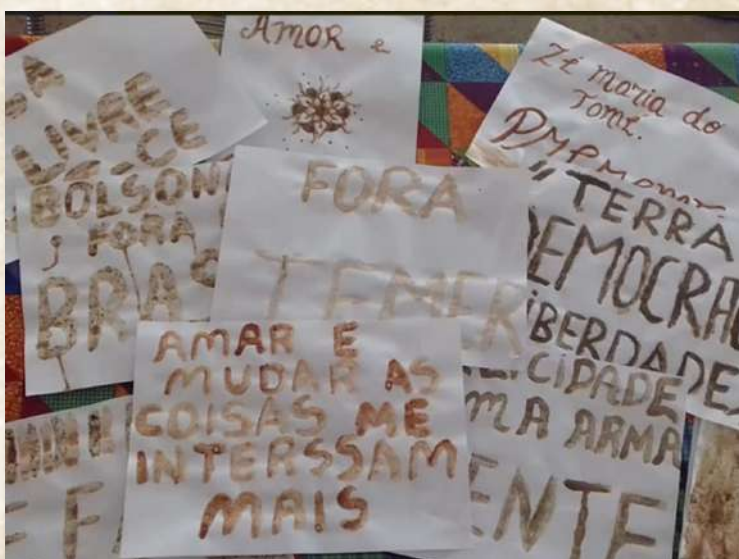 LIVRE
AMOR e
Zé maria do
Tomé.
BOLSON
FORA
BRAS
FORA
TEMER
"TERRA
DEMOCRA
LIBERDADE
CIDADE
MA ARMA
ENTE
AMAR E
MUDAR AS
COISAS ME
INTERSSAM
MAIS